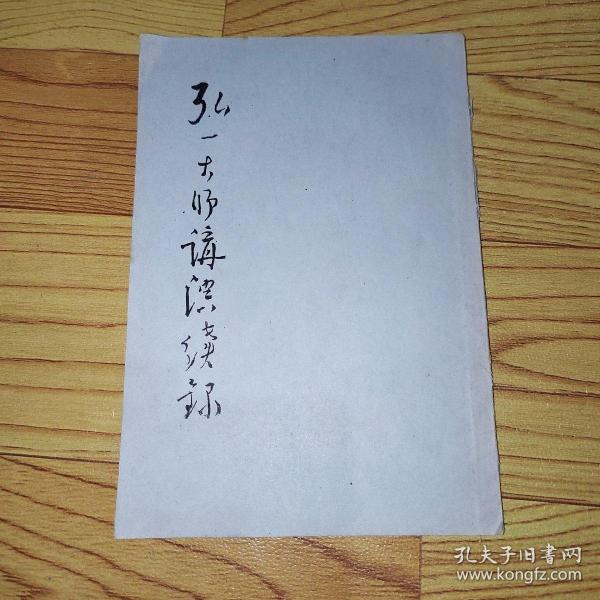 弘一大师講演续錄
孔夫子旧書网
www.kongfz.com